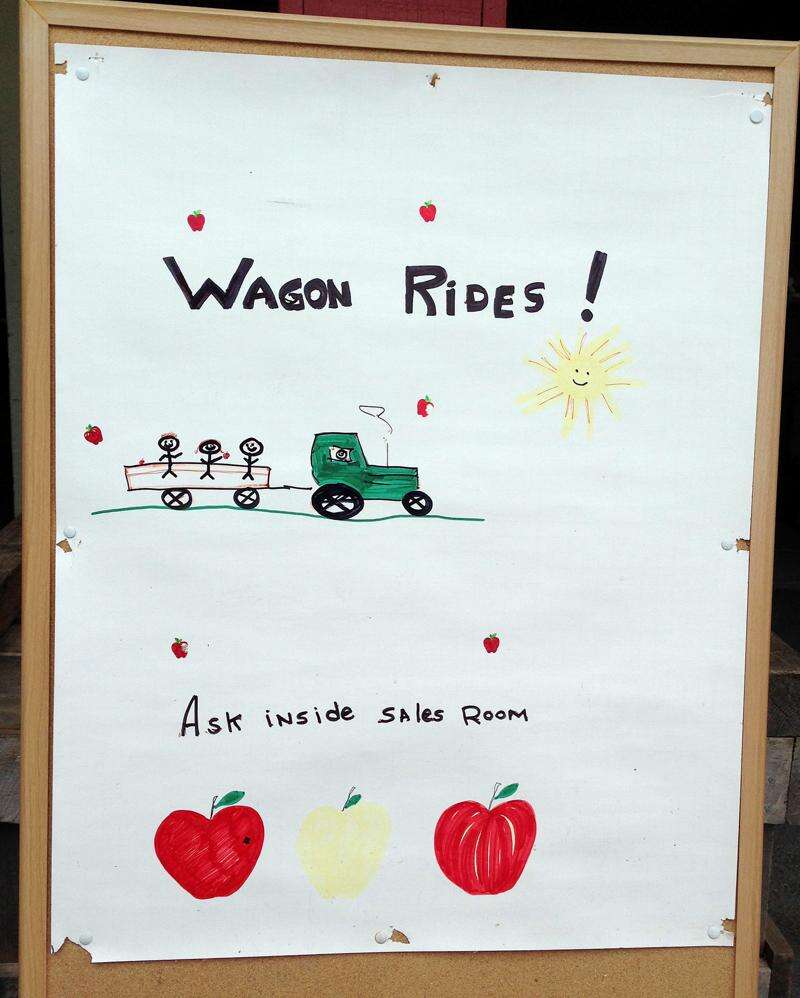 WAGON RiDES !
Ask iNside sAles RooM